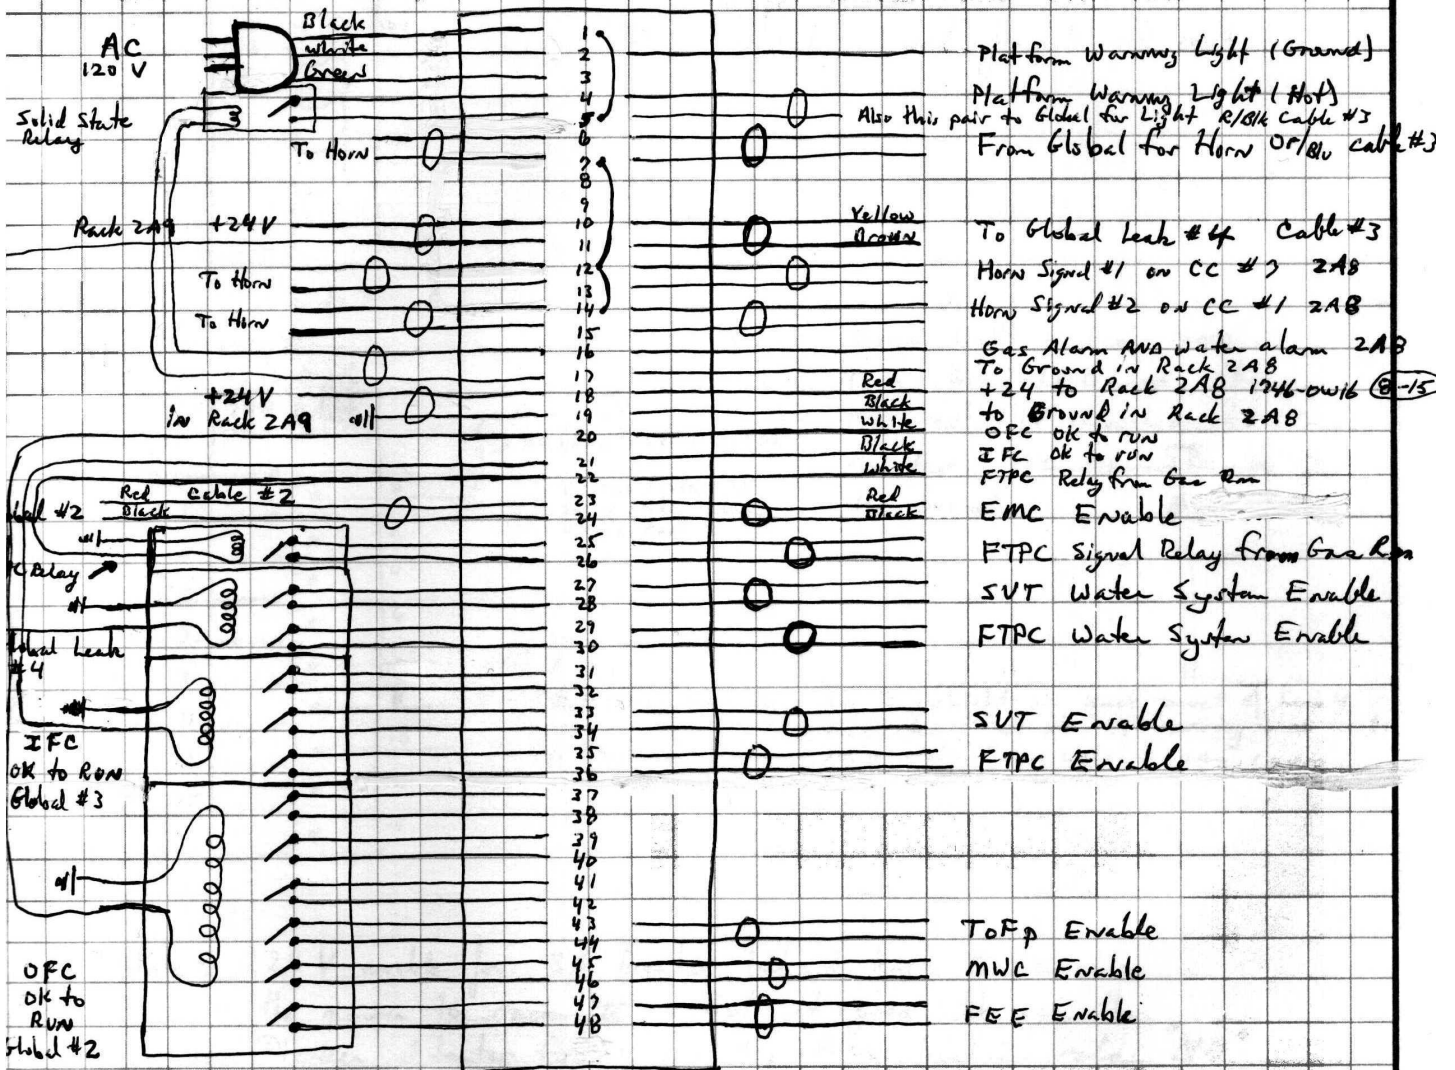 Black
AC
White
120 V
Green
Solid State
Relay
To Horn
Rack 2A9 +24V
To Horn
To Horn
+24V
in Rack 2A9
Red Cable #2
#2 Black
Relay
Leak
#4
IFC
OK to Run
Global #3
OFC
OK to
Run
Global #2
1
2
3
4
5
6
7
8
9
10
11
12
13
14
15
16
17
18
19
20
21
22
23
24
25
26
27
28
29
30
31
32
33
34
35
36
37
38
39
40
41
42
43
44
45
46
47
48
Yellow
Brown
Red
Black
White
Black
White
Red
Black
Platform Warning Light (Ground)
Platform Warning Light (Hot)
Also this pair to Global for Light R/Blk Cable #3
From Global for Horn Or/Blu cable #3
To Global Leak #4 Cable #3
Horn Signal #1 on CC #3 2A8
Horn Signal #2 on CC #1 2A8
Gas Alarm AND water alarm 2A8
To Ground in Rack 2A8
+24 to Rack 2A8 1746-OW16 8-15
to Ground in Rack 2A8
OFC OK to run
IFC OK to run
FTPC Relay from Gas Rm
EMC Enable
FTPC Signal Relay from Gas Rm
SVT Water System Enable
FTPC Water System Enable
SVT Enable
FTPC Enable
TOFp Enable
MWC Enable
FEE Enable